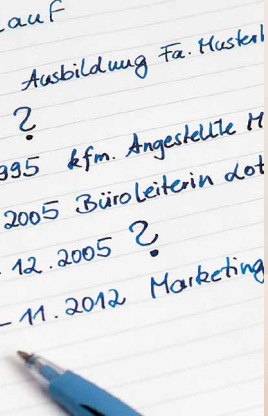 auf
Ausbildung Fa. Muster
?
995 kfm. Angestellte M
2005 Büroleiterin dot
12.2005 ?
- 11.2012 Marketing